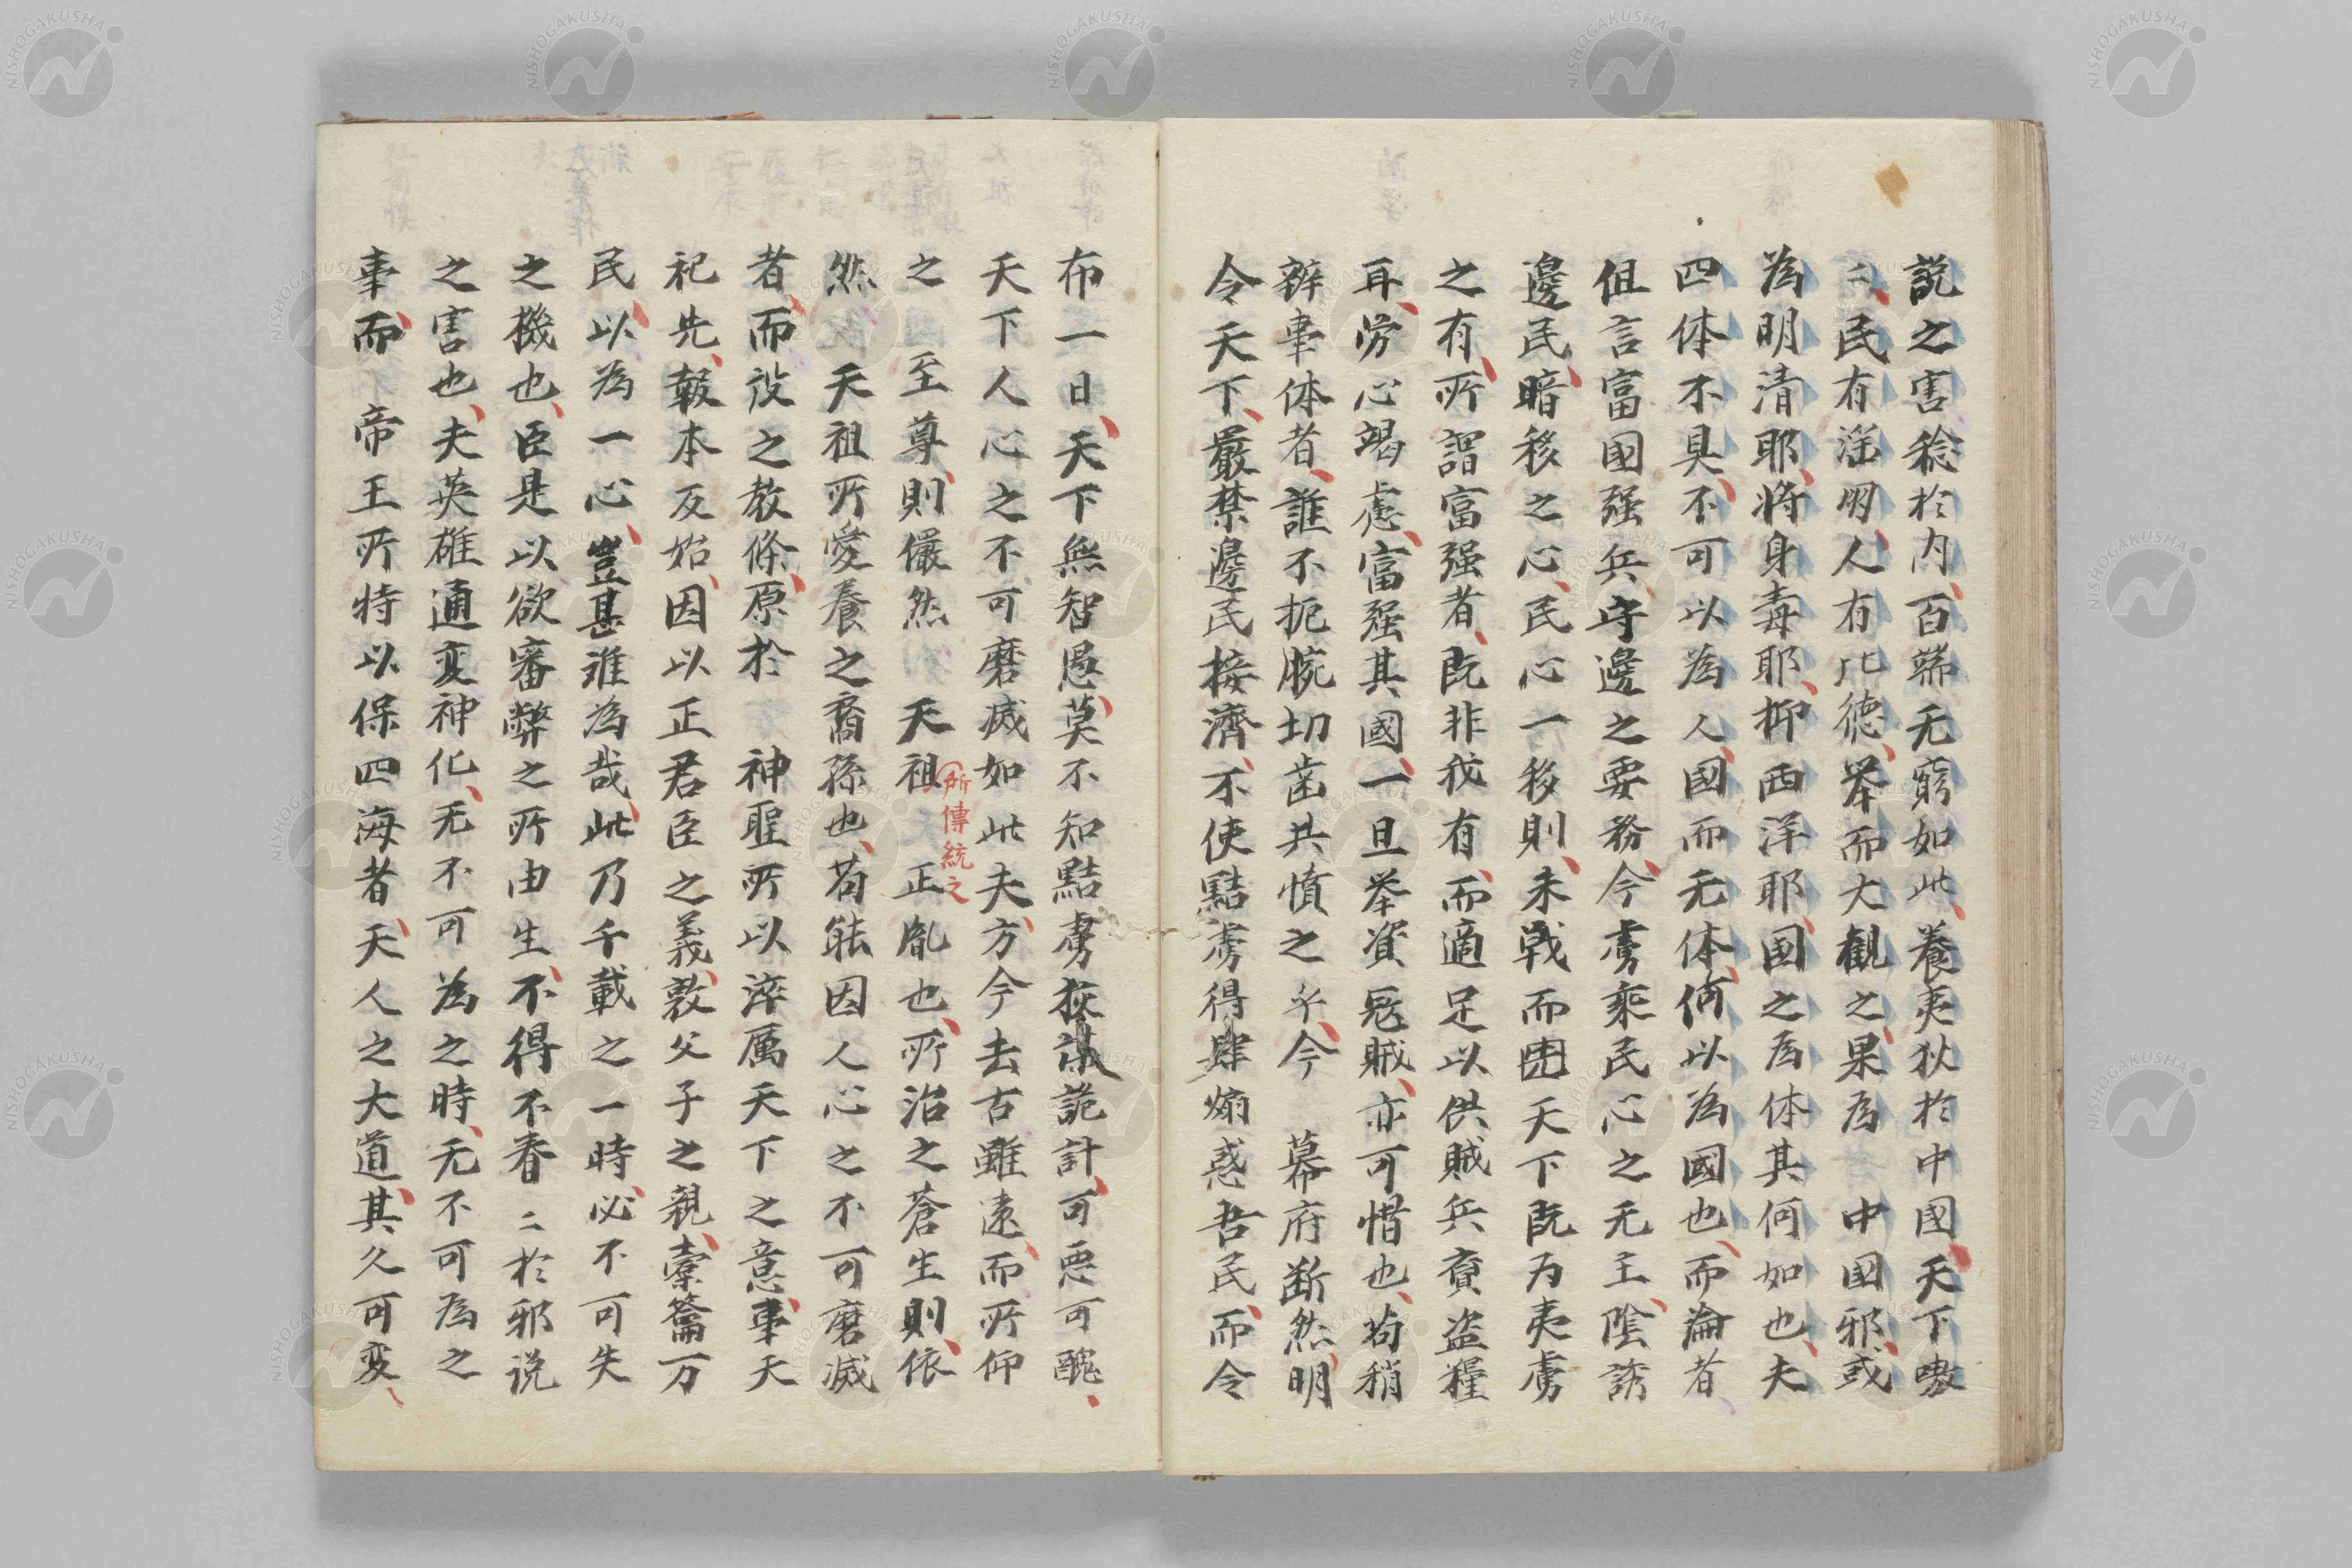 説之害稔於内百端无窮如此養夷狄於中國天下嗷
々民有淫朋人有比徳举而大觀之果為　中国邪或
為明清耶将身毒耶抑西洋耶国之為体其何如也夫
四体不具不可以為人國而无体何以為國也而論者
但言富國强兵守邊之要務今虜乘民心之无主陰誘
邊民暗移之心民心一移則未戰而囲天下既為夷虜
之有所謂富强者既非我有而適足以供賊兵賫盗糧
耳労心竭慮富强其國一旦举資冦賊亦可惜也苟稍
辨事体者誰不扼腕切歯共憤之乎今　幕府断然明
令天下嚴禁邊民接濟不使黠虜得肆煽惑吾民而令
布一日天下無智愚莫不知黠虜狄詭計可惡可醜
天下人心之不可磨滅如此夫方今去古雖遠而所仰
之　至尊則儼然　天祖　正胤也所治之蒼生則依
所傳統之
然　天祖所愛養之裔孫也苟能因人心之不可磨滅
者而設之教條原於　神聖所以淬厲天下之意事天
祀先報本反始因以正君臣之義敦父子之親橐籥万
民以為一心豈甚难為哉此乃千載之一時必不可失
之機也臣是以欲審弊之所由生不得不眷々於邪説
之害也夫英雄通変神化无不可為之時无不可為之
事而　帝王所恃以保四海者天人之大道其久可変
NISHOGAKUSHA